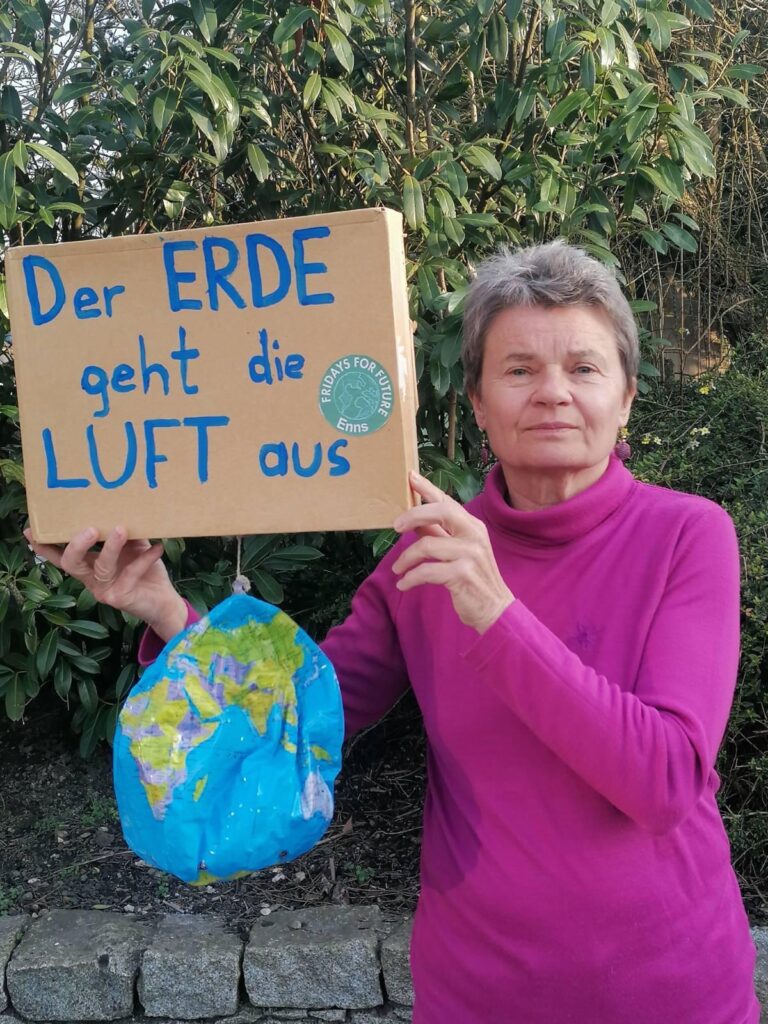 Der ERDE
geht die
LUFT aus
FRIDAYS FOR FUTURE
Enns